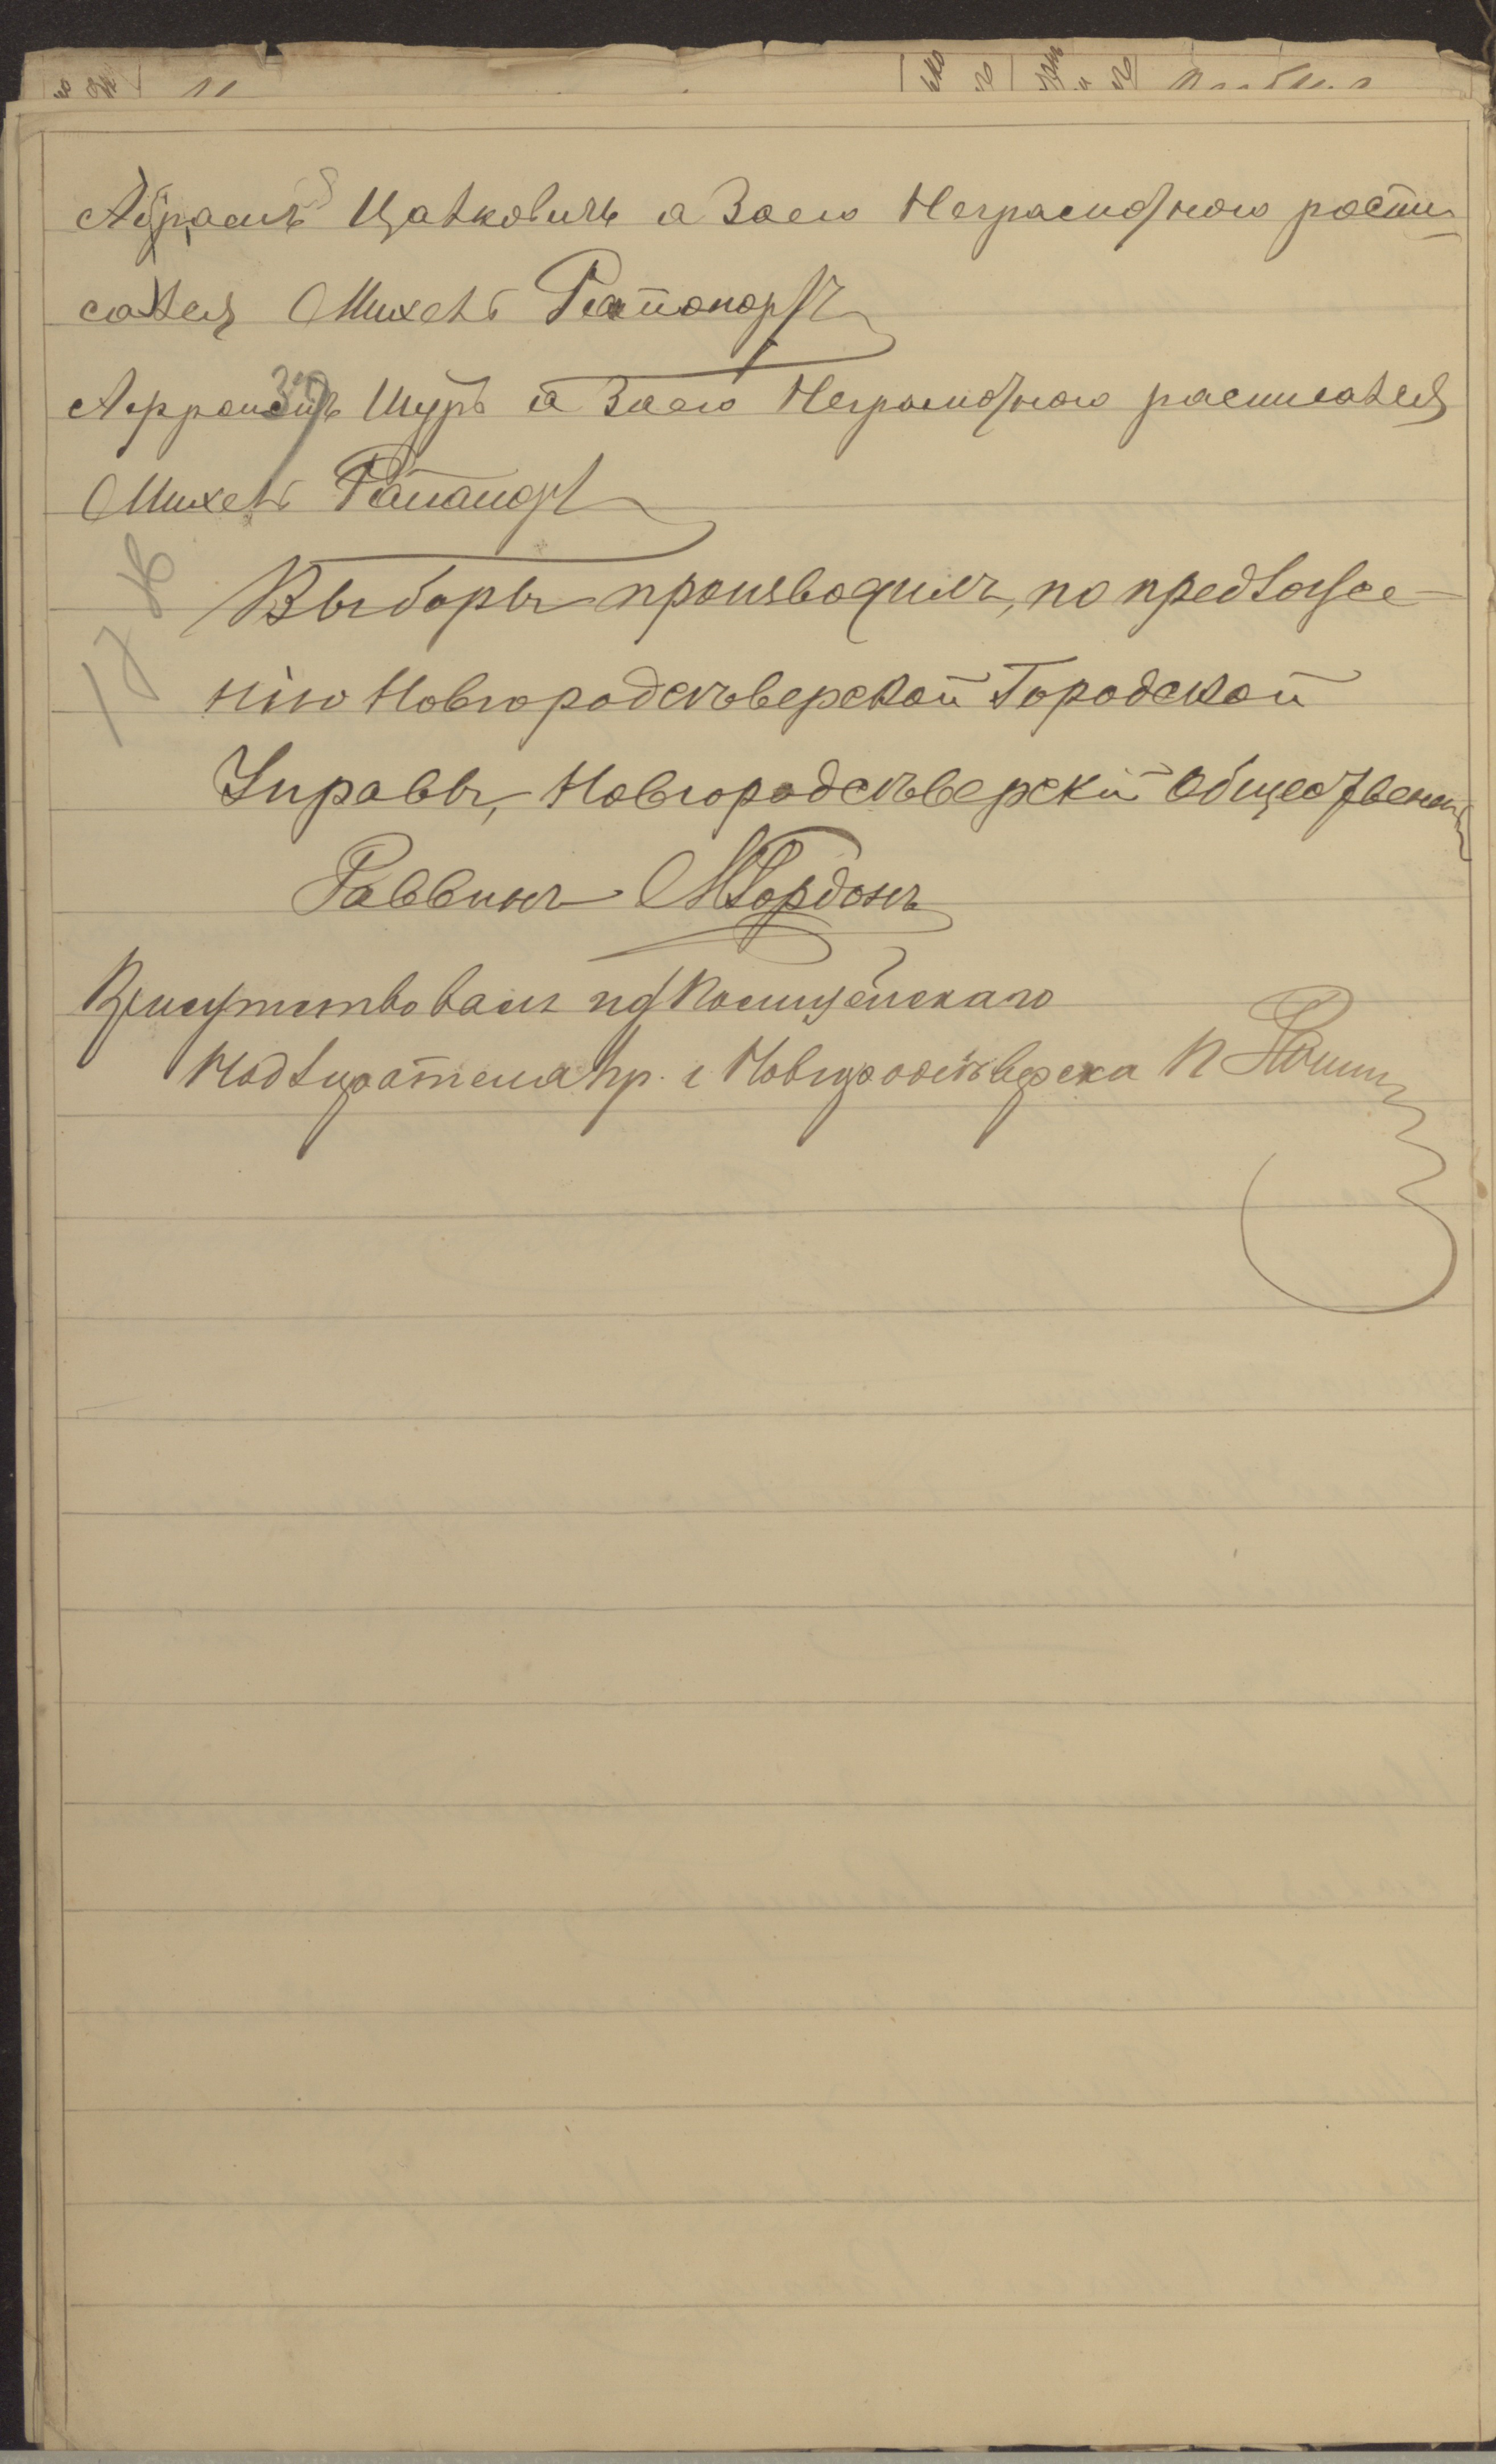 Абрамъ Цалковичъ а За его Неграмотного роспи-
сался Михелъ Рапопортъ
Шуръ а За его Неграмотного расписался
Михелъ Рапапорт
Выборы производилъ, по предложе-
нію Новгородсѣверской Городской
Управы, Новгородсѣверскій Общественный
Раввинъ МГордонъ
Присутствовалъ Полицейскаго
Надзирателя гр. г Новгородсѣверска П